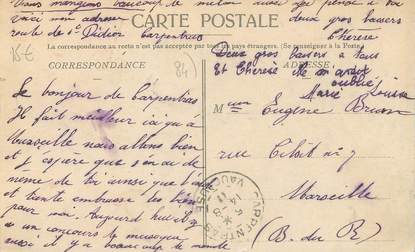 Nous mangeons beaucoup de melon aussi je pense à toi
voici mon adresse
route de St Didier Carpentras
deux gros baisers
Therese
CARTE POSTALE
La correspondance au recto n'est pas acceptée par tous les pays étrangers. (Se renseigner à la Poste)
CORRESPONDANCE
ADRESSE
15€
84
Deux gros baisers à tous
Et Therèse
oublié
Marie Louise
Le bonjour de Carpentras
Il fait meilleur ici qu'à
Marseille nous allons bien
et espère que s'en ai de
même de toi ainsi que
tante embrasse les bien
pour moi. Aujourd'hui il y a
un concours de musique
aussi il y a beaucoup de monde
Mme Eugène Brun
rue Tilsit no 7
Marseille
(B du R)
CARPENTRAS
VAUCLUSE
14-8